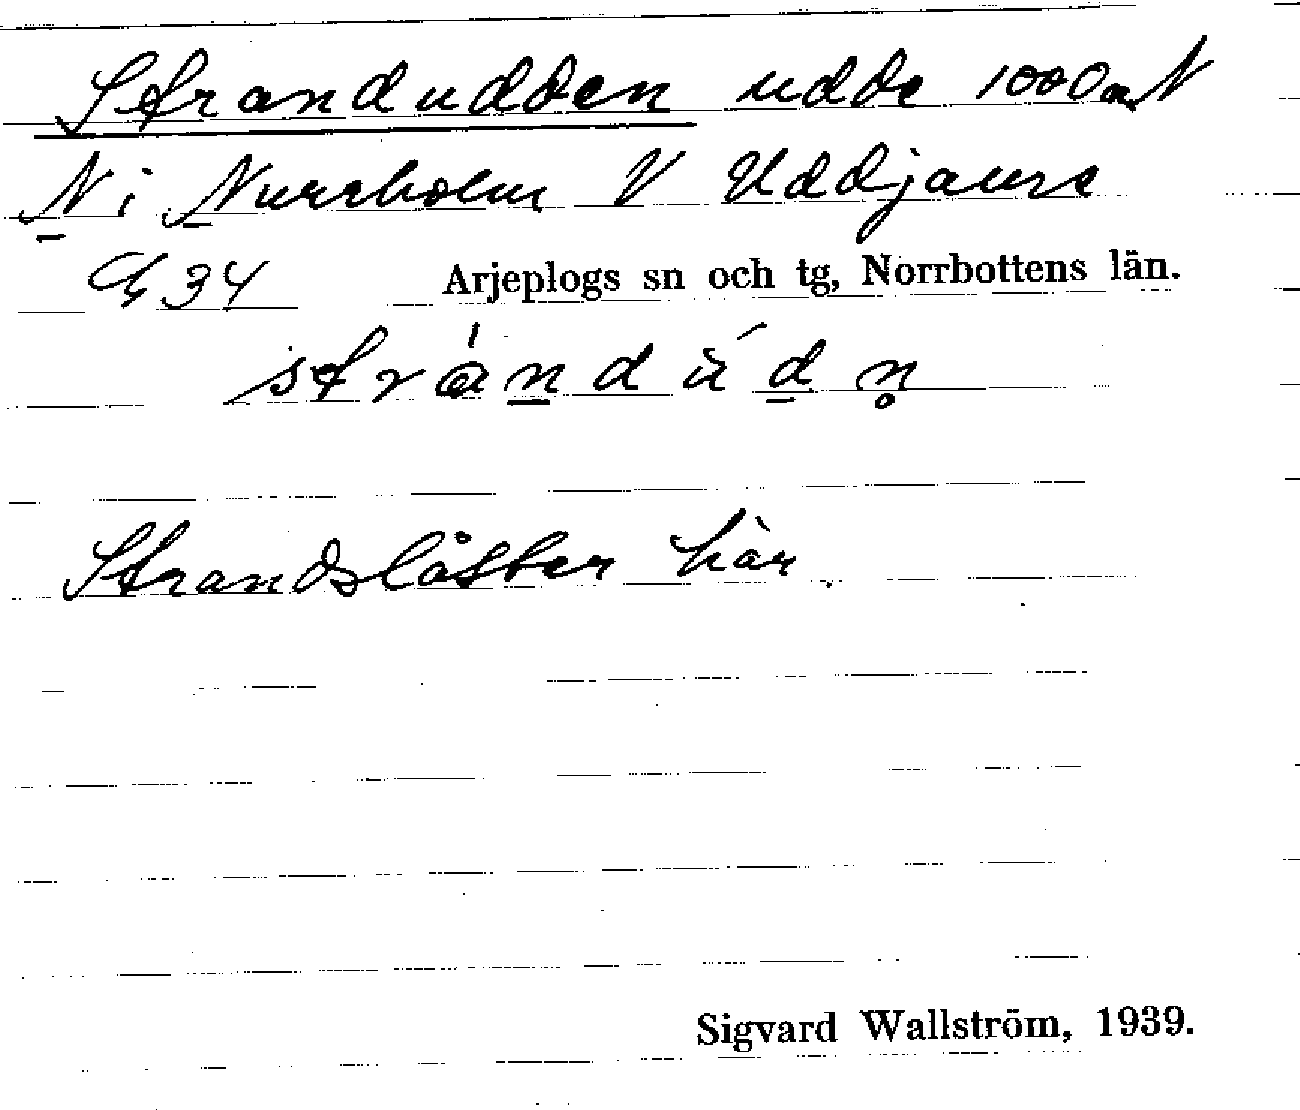 Strandudden udde 1000 m N
N i Nurrholm V Uddjaure
G 34 Arjeplogs sn och tg, Norrbottens län.
strándúdn̥
Strandslåtter här.
Sigvard Wallström, 1939.